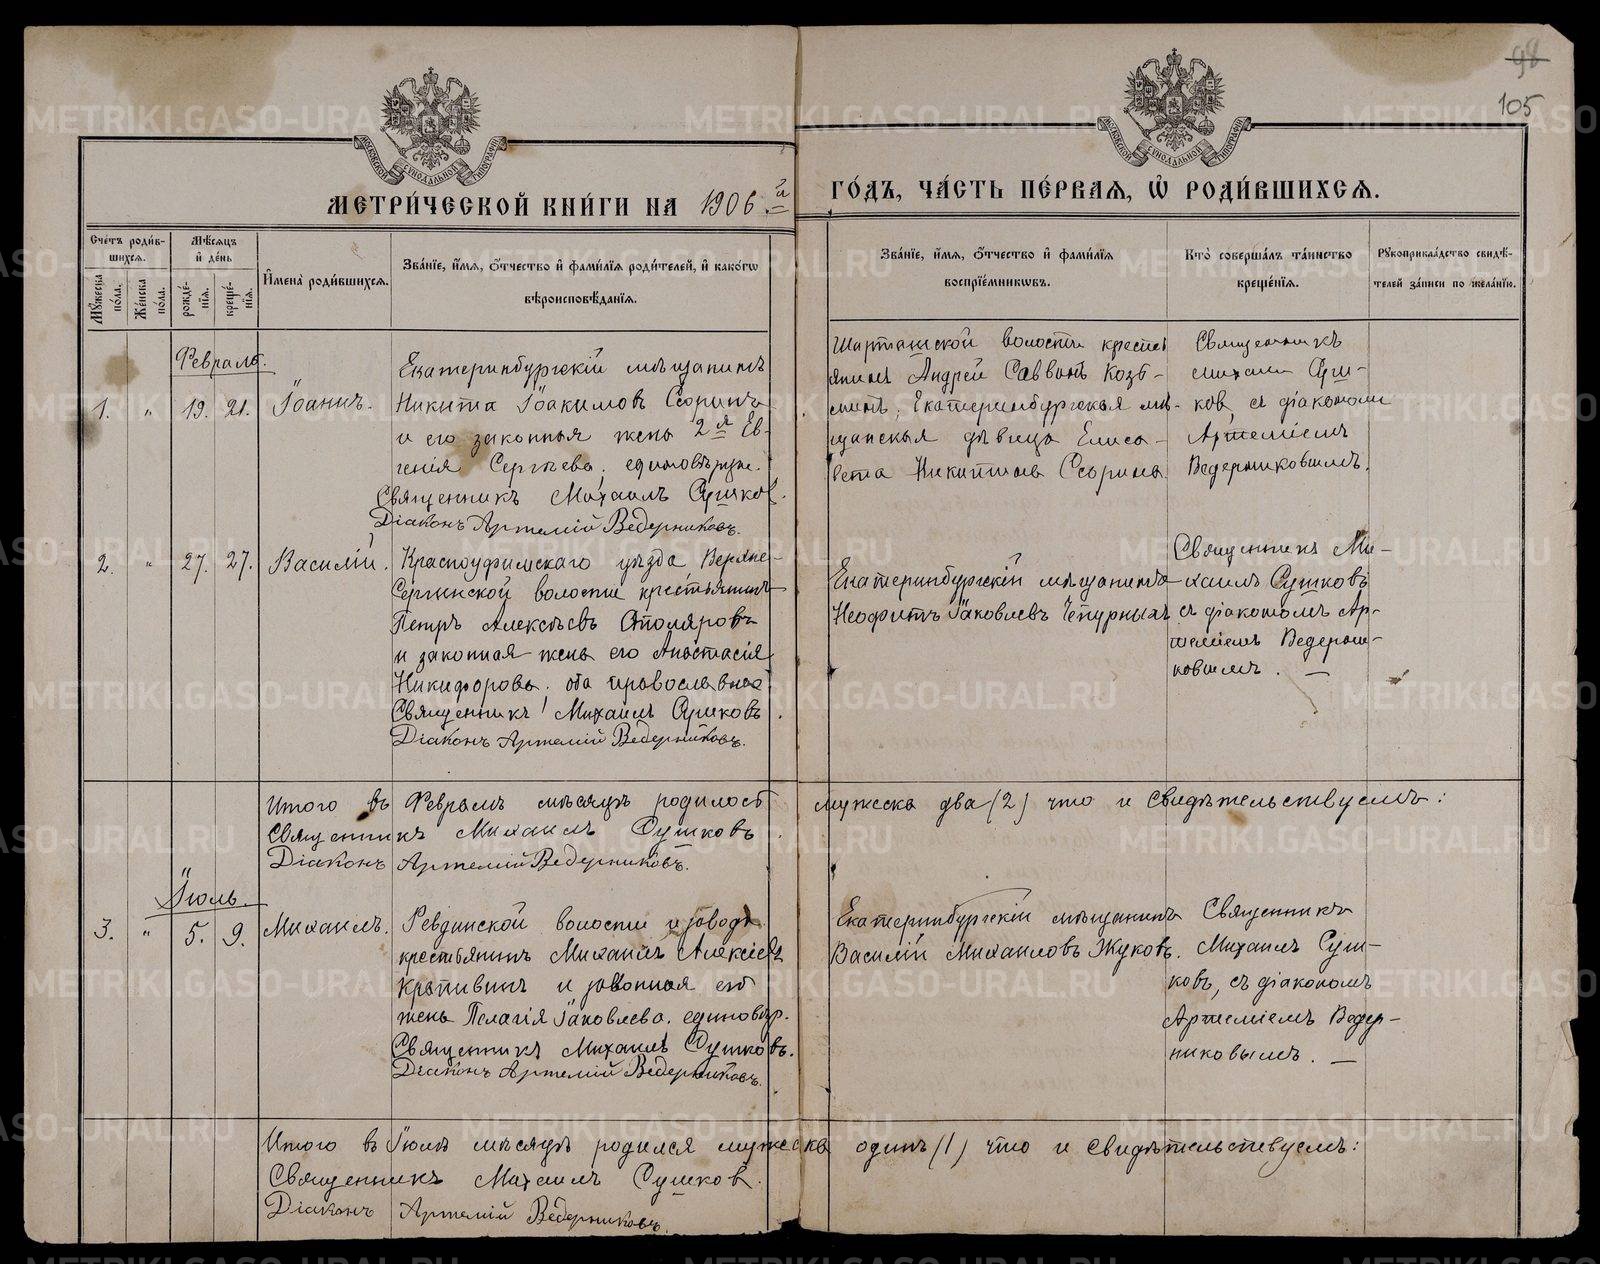 98
105
МОСКОВСКОЙ СѴНОДАЛЬНОЙ ТИПОГРАФІИ
МОСКОВСКОЙ СѴНОДАЛЬНОЙ ТИПОГРАФІИ
МЕТРИ́ЧЕСКОЙ КНИ́ГИ НА 1906 й
ГО́ДЪ, ЧА́СТЬ ПЕ́РВАѦ, Ѡ҆ РОДИ́ВШИХСѦ.
Сче́тъ роди́в-
шихсѧ.
Мꙋ́жеска
по́ла.
Же́нска
по́ла.
Мѣ́сѧцъ
и҆ де́нь
рожде́-
нїѧ.
креще́-
нїѧ.
И҆мена̀ роди́вшихсѧ.
Зва́нїе, и҆́мѧ, ѻ҆́тчество и҆ фами́лїѧ роди́телей, и҆ како́гѡ
вѣроисповѣ́данїѧ.
Зва́нїе, и҆́мѧ, ѻ҆́тчество и҆ фами́лїѧ
воспрїе́мникѡвъ.
Кто̀ соверша́лъ та́инство
креще́нїѧ.
Рꙋкоприкла́дство свидѣ́-
телей за́писи по жела́нїю.
Февраль.
1. " 19. 21. Іоаннъ.
Екатеринбургскій мѣщанинъ
Никита Іоакимовъ Ссоринъ
и его законная жена 2я Ев-
генія Сергѣева, единовѣрче.
Священникъ Михаилъ Сушков.
Діаконъ Артемій Ведерниковъ.
Шарташской волости кресть
янинъ Андрей Саввинъ Козь-
минъ, Екатеринбургская мѣ-
щанская дѣвица Елиса-
вета Никитина Ссорина
Священникъ
Михаилъ Суш-
ковъ, съ діакономъ
Артеміемъ
Ведерниковымъ.
2. " 27. 27. Василій.
Красноуфимскаго уѣзда Верхне-
Сергинской волости крестьянинъ
Петръ Алексѣевъ Столяровъ
и законная жена его Анастасія
Никифорова. оба православные
Священникъ Михаилъ Сушковъ.
Діаконъ Артемій Ведерниковъ.
Екатеринбургскій мѣщанинъ
Неофитъ Іаковлевъ Чепурныхъ
Священникъ Ми-
хаилъ Сушковъ
съ діакономъ Ар-
теміемъ Ведерни-
ковымъ. —
Итого въ Февралѣ мѣсяцѣ родилось мужеска два (2) что и свидѣтельствуемъ:
Священникъ Михаилъ Сушковъ.
Діаконъ Артемій Ведерниковъ.
Іюль.
3. " 5. 9. Михаилъ.
Ревдинской волости и завода
крестьянинъ Михаилъ Алексѣевъ
Крапивинъ и законная его
жена Пелагія Іаковлева. единовѣр.
Священникъ Михаилъ Сушковъ.
Діаконъ Артемій Ведерниковъ.
Екатеринбургскій мѣщанинъ
Василій Михаиловъ Жуковъ.
Священникъ
Михаилъ Суш-
ковъ, съ діакономъ
Артеміемъ Ведер-
никовымъ. —
Итого въ Іюлѣ мѣсяцѣ родился мужеска одинъ (1) что и свидѣтельствуемъ:
Священникъ Михаилъ Сушков.
Діаконъ Артемій Ведерниковъ.
METRIKI.GASO-URAL.RU